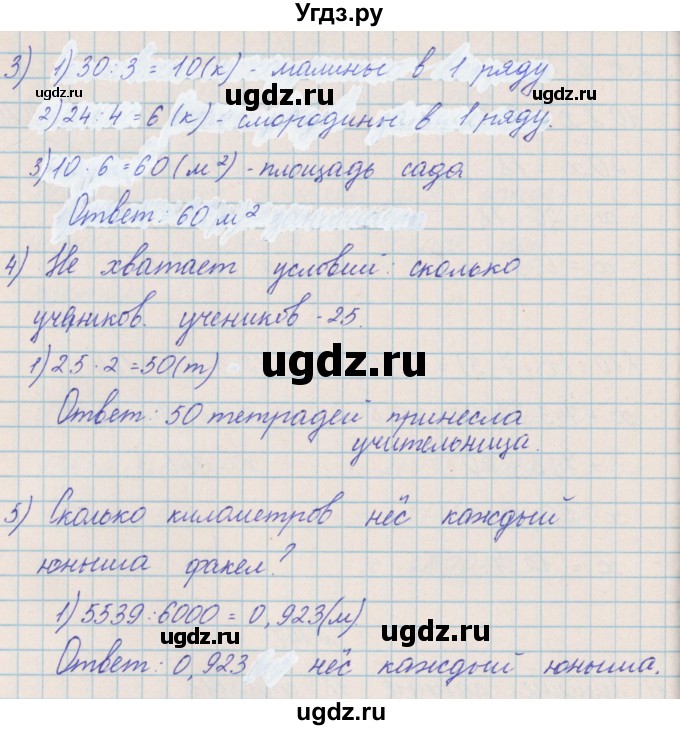 Угдз.ру
3) 1) 30 : 3 = 10 (к) - малины в 1 ряду
ugdz.ru ugdz.ru
2) 24 : 4 = 6 (к) - смородины в 1 ряду.
3) 10 · 6 = 60 (м²) - площадь сада
Ответ: 60 м²
4) Не хватает условий: сколько
учеников. учеников - 25.
ugdz.ru
1) 25 · 2 = 50 (т)
Ответ: 50 тетрадей принесла
учительница.
5) Сколько километров нёс каждый
юныша факел?
1) 5539 : 6000 = 0,923 (м)
ugdz.ru ugdz.ru
Ответ: 0,923 нёс каждый юныша.
ugdz.ru